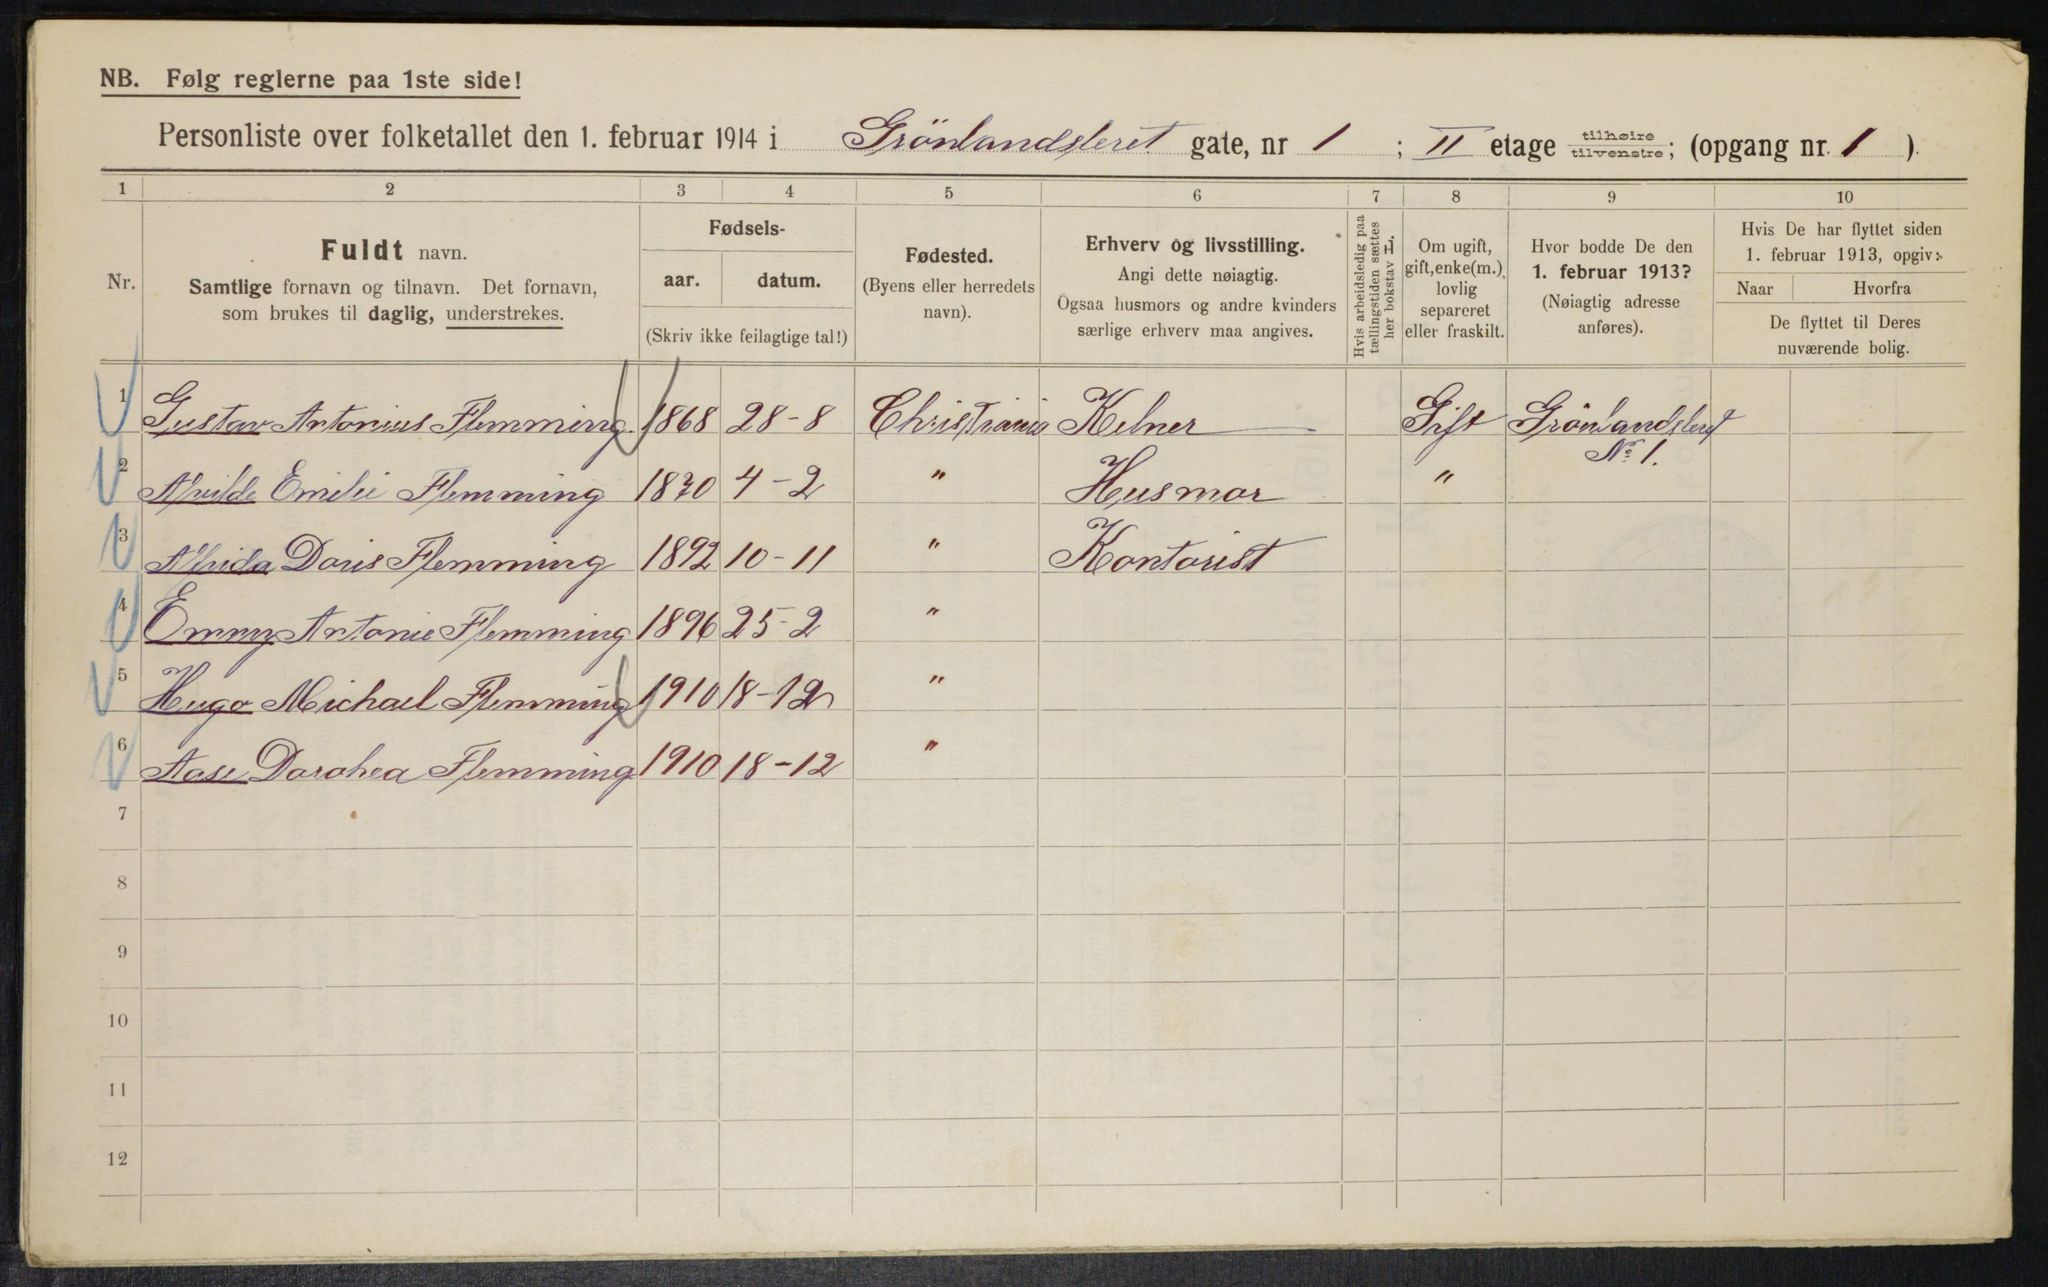 NB. Følg reglerne paa 1ste side!
Personliste over folketallet den 1. februar 1914 i Grönlandsleret gate, nr 1 ; II etage tilhøire/tilvenstre; (opgang nr. 1 ).
1 2 3 4 5 6 7 8 9 10
Nr.
Fuldt navn.
Samtlige fornavn og tilnavn. Det fornavn,
som brukes til daglig, understrekes.
Fødsels-
aar. datum.
(Skriv ikke feilagtige tal!)
Fødested.
(Byens eller herredets
navn).
Erhverv og livsstilling.
Angi dette nøiagtig.
Ogsaa husmors og andre kvinders
særlige erhverv maa angives.
Hvis arbeidsledig paa
tællingstiden sættes
her bokstav L.
Om ugift,
gift, enke(m.),
lovlig
separeret
eller fraskilt.
Hvor bodde De den
1. februar 1913?
(Nøiagtig adresse
anføres).
Hvis De har flyttet siden
1. februar 1913, opgiv:
Naar Hvorfra
De flyttet til Deres
nuværende bolig.
1 Gustav Antonius Flemming. 1868 28-8 Christiania Kelner Gift Grönlandsleret
No 1.
2 Alvilde Emilie Flemming 1870 4-2 " Husmor "
3 Alvida Doris Flemming 1892 10-11 " Kontorist
4 Emmy Antonie Flemming 1896 25-2 "
5 Hugo Michael Flemming 1910 18-12 "
6 Aase Dorohea Flemming 1910 18-12 "
7
8
9
10
11
12